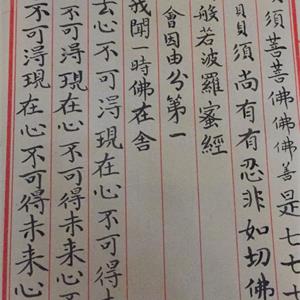 須菩菩佛佛佛善是七七
貝貝須尚有有忍非如切佛
般若波羅蜜經
會因由分第一
我聞一時佛在舍
去心不可得現在心不可得
不可得現在心不可得未來心
不可得現在心不可得未來心